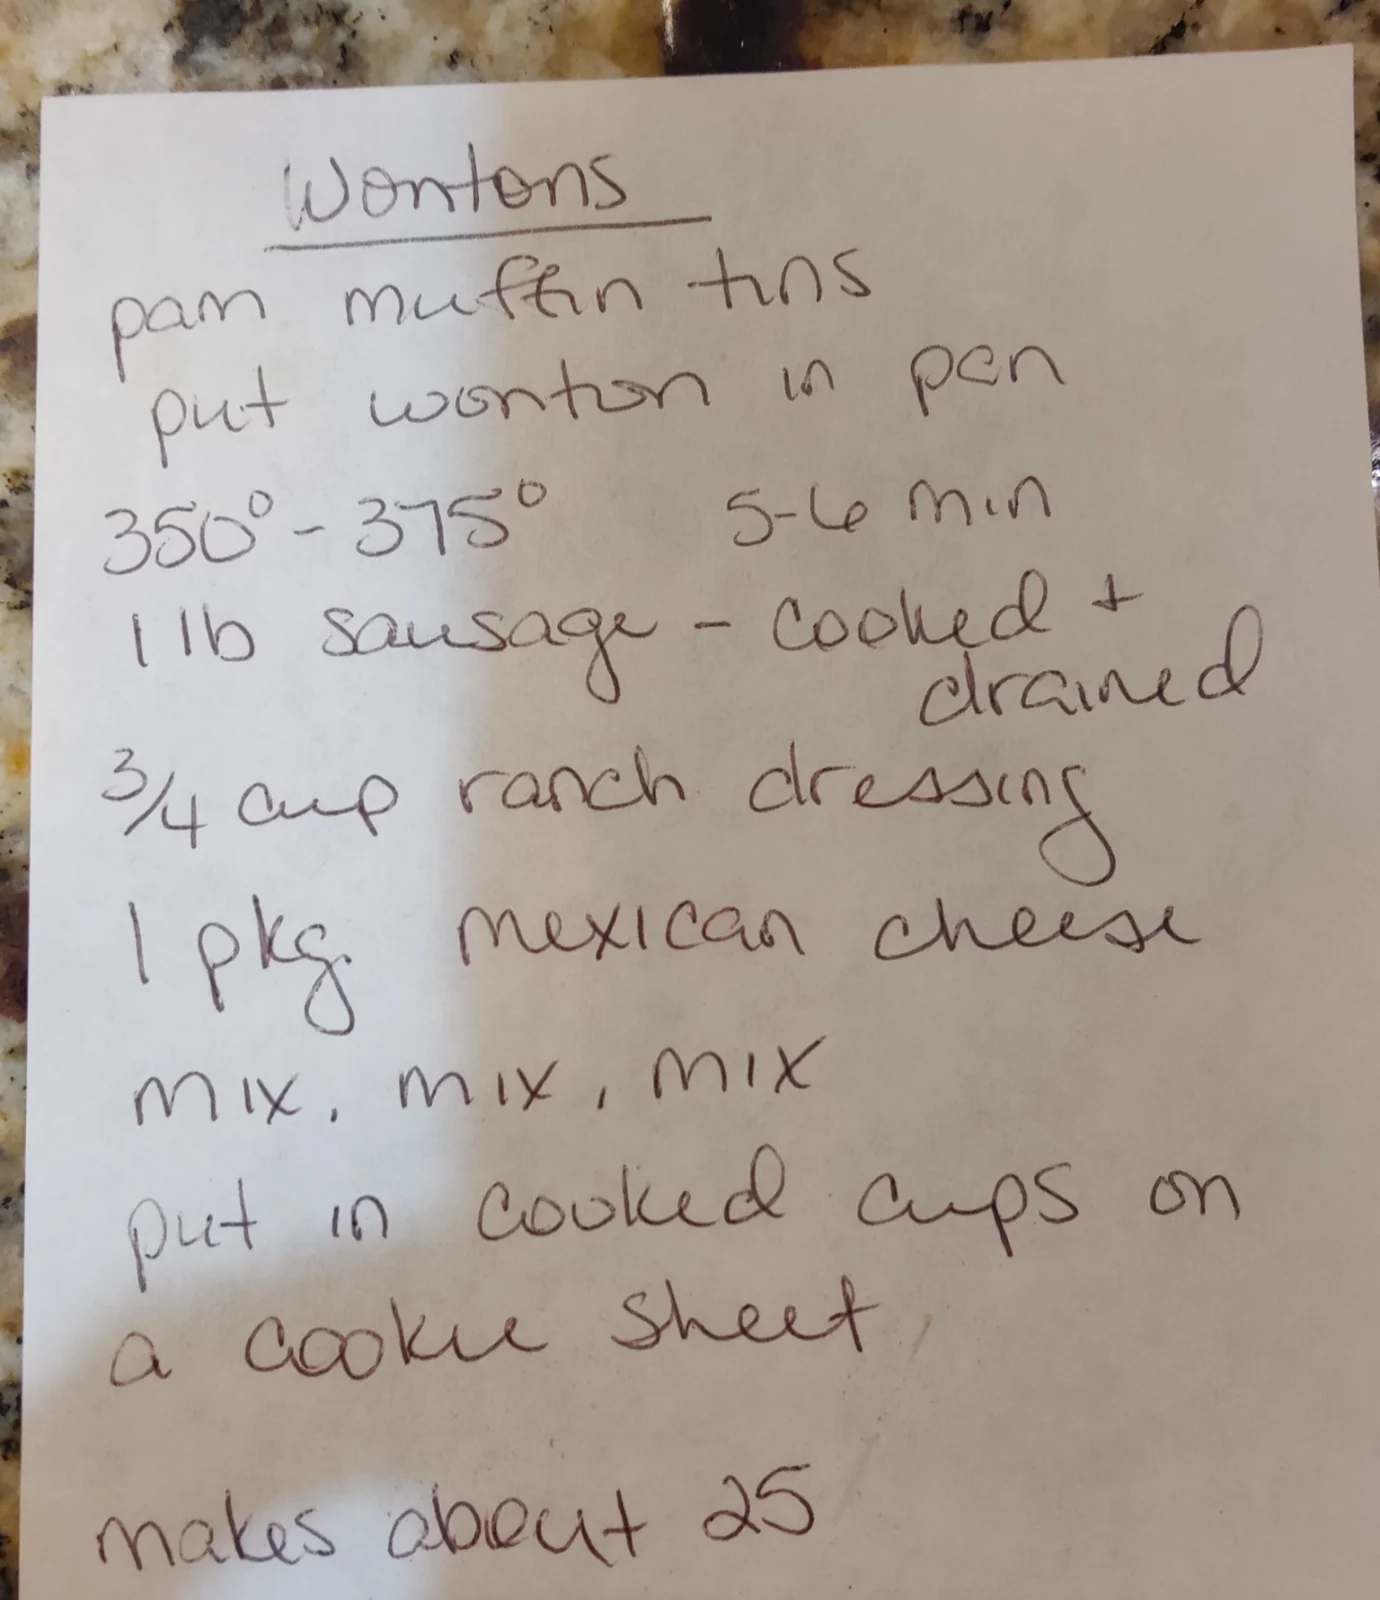 Wontons
pam muffin tins
put wonton in pan
350° - 375° 5-6 min
1 lb sausage - cooked +
drained
3/4 cup ranch dressing
1 pkg. mexican cheese
mix, mix, mix
put in cooked cups on
a cookie sheet
makes about 25